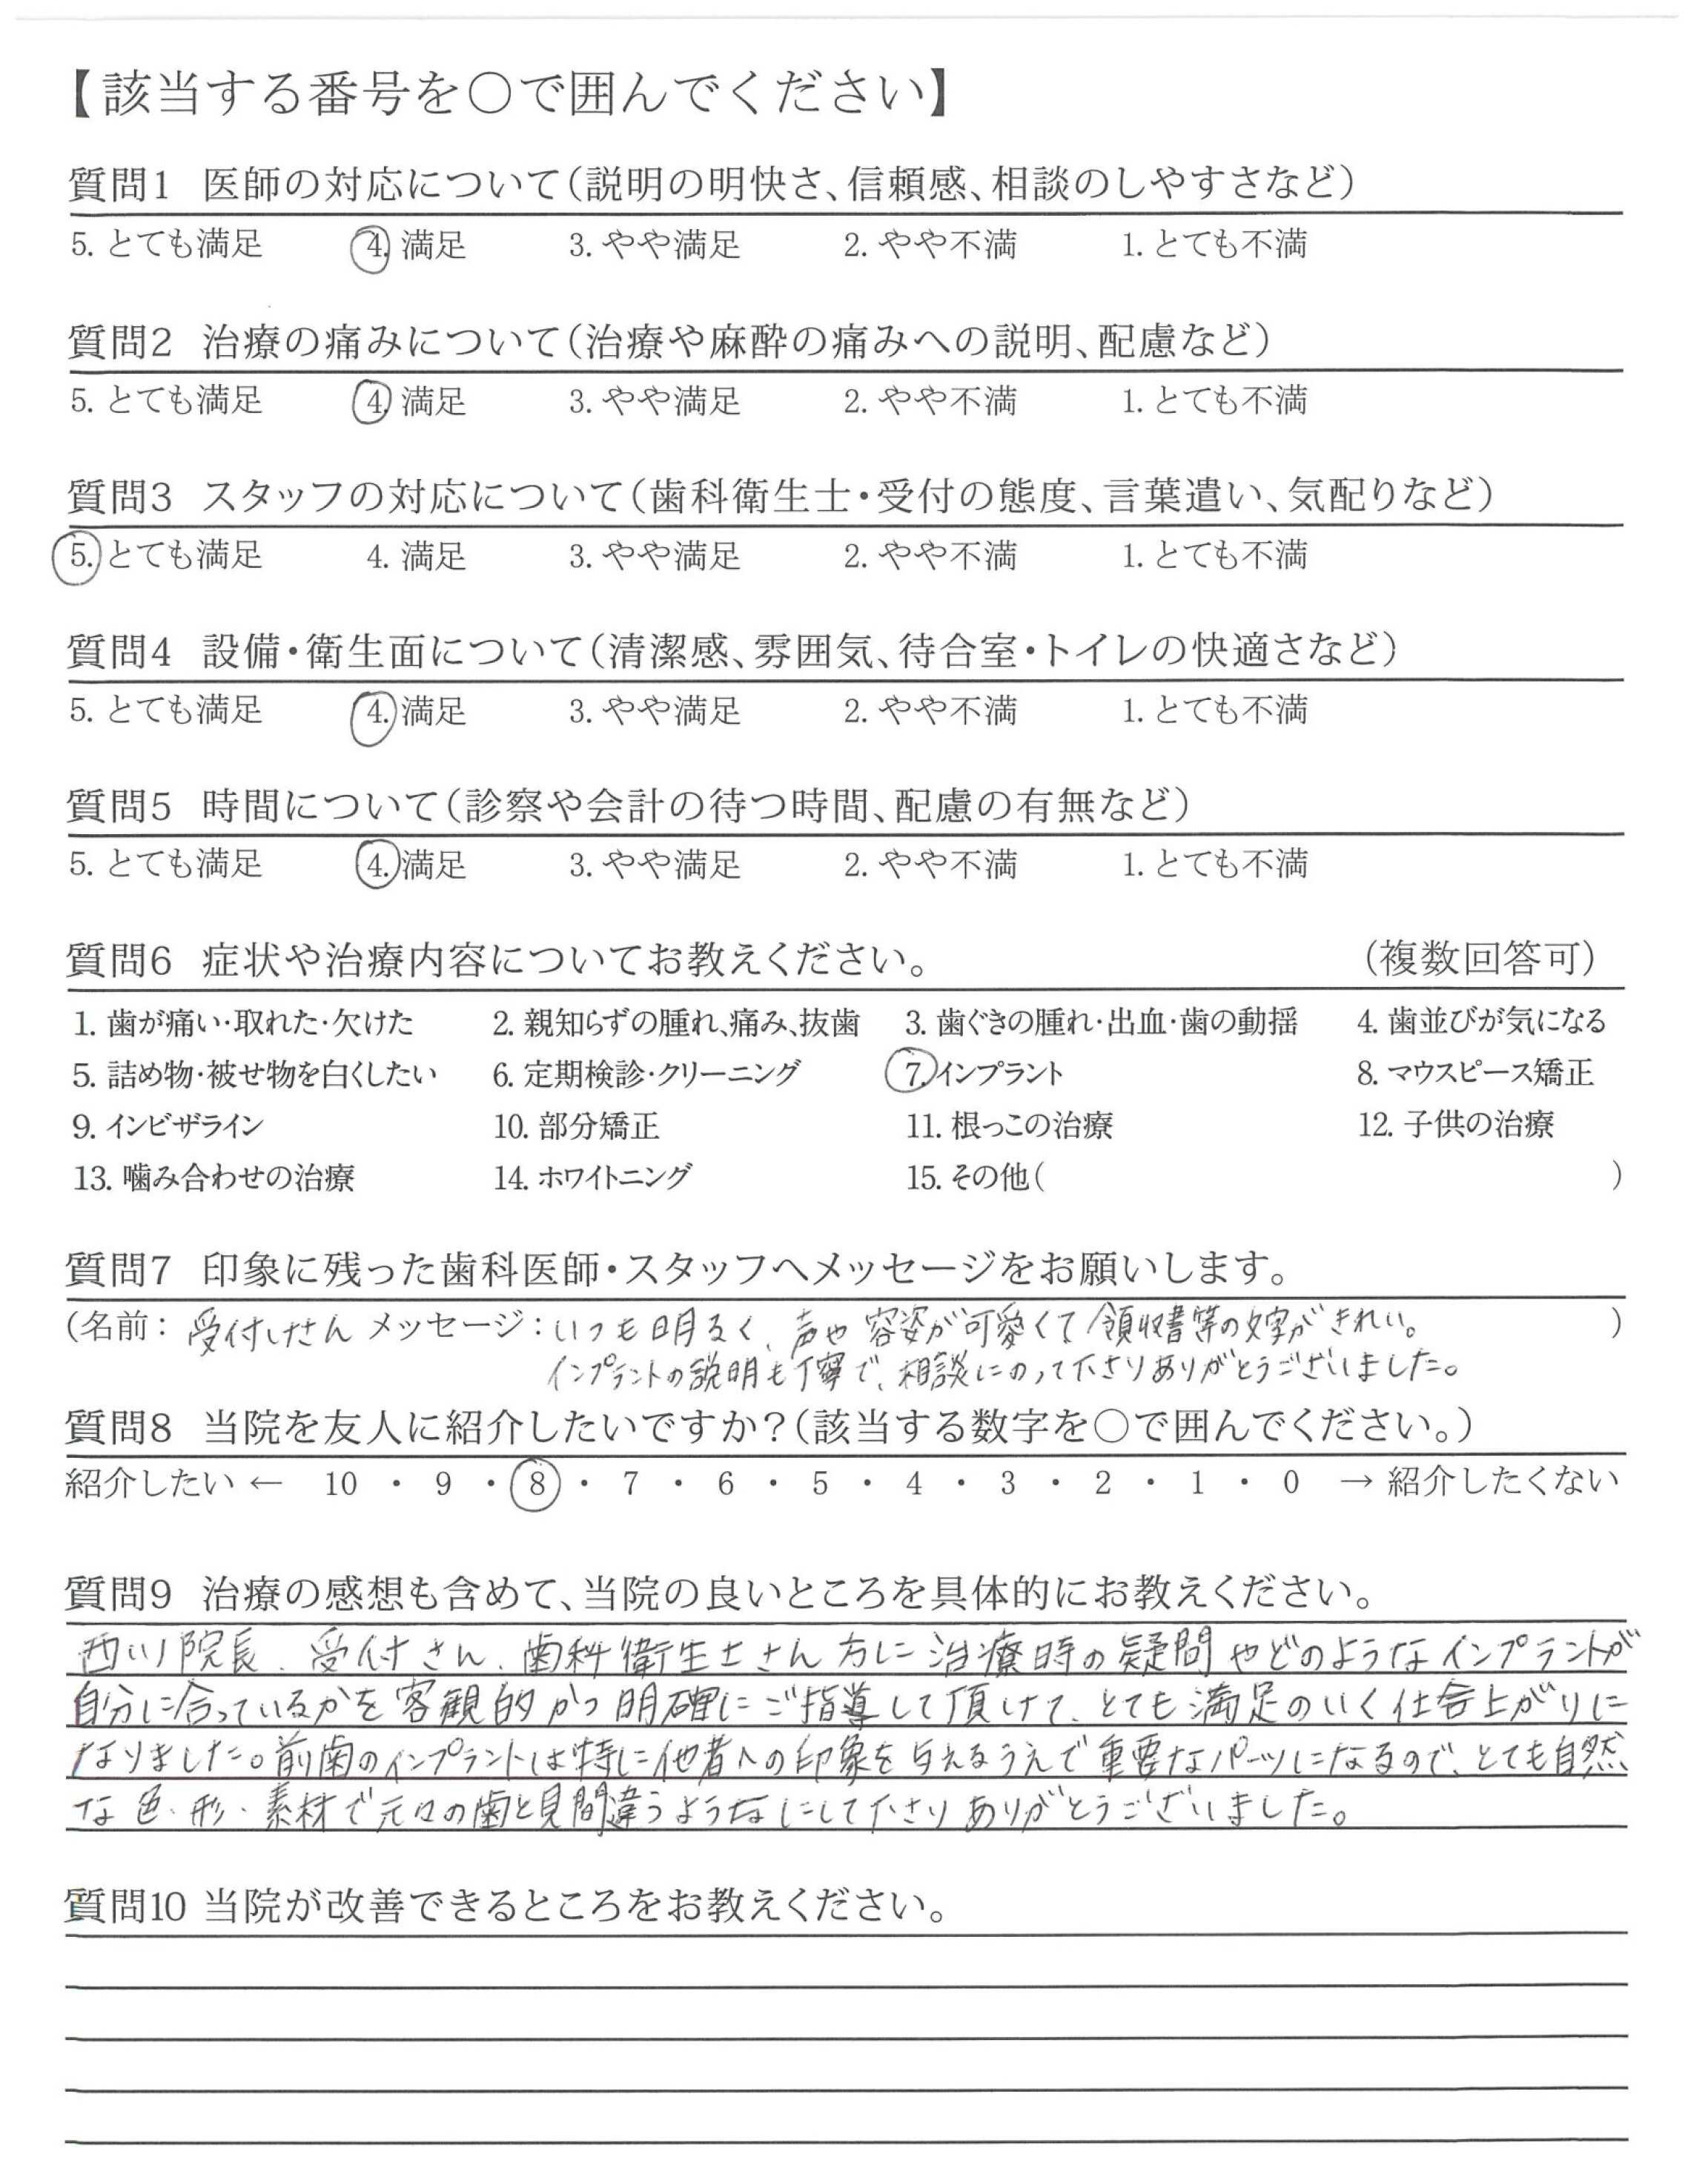 【該当する番号を○で囲んでください】
質問1 医師の対応について(説明の明快さ、信頼感、相談のしやすさなど)
5. とても満足 4. 満足 3. やや満足 2. やや不満 1. とても不満
質問2 治療の痛みについて(治療や麻酔の痛みへの説明、配慮など)
5. とても満足 4. 満足 3. やや満足 2. やや不満 1. とても不満
質問3 スタッフの対応について(歯科衛生士・受付の態度、言葉遣い、気配りなど)
5. とても満足 4. 満足 3. やや満足 2. やや不満 1. とても不満
質問4 設備・衛生面について(清潔感、雰囲気、待合室・トイレの快適さなど)
5. とても満足 4. 満足 3. やや満足 2. やや不満 1. とても不満
質問5 時間について(診察や会計の待つ時間、配慮の有無など)
5. とても満足 4. 満足 3. やや満足 2. やや不満 1. とても不満
質問6 症状や治療内容についてお教えください。 (複数回答可)
1. 歯が痛い・取れた・欠けた 2. 親知らずの腫れ、痛み、抜歯 3. 歯ぐきの腫れ・出血・歯の動揺 4. 歯並びが気になる
5. 詰め物・被せ物を白くしたい 6. 定期検診・クリーニング 7. インプラント 8. マウスピース矯正
9. インビザライン 10. 部分矯正 11. 根っこの治療 12. 子供の治療
13. 噛み合わせの治療 14. ホワイトニング 15. その他( )
質問7 印象に残った歯科医師・スタッフへメッセージをお願いします。
(名前: 受付けさん メッセージ: いつも明るく、声や容姿が可愛くて領収書等の文字がきれい。 )
インプラントの説明も丁寧で、相談にのって下さりありがとうございました。
質問8 当院を友人に紹介したいですか?(該当する数字を○で囲んでください。)
紹介したい ← 10 ・ 9 ・ 8 ・ 7 ・ 6 ・ 5 ・ 4 ・ 3 ・ 2 ・ 1 ・ 0 → 紹介したくない
質問9 治療の感想も含めて、当院の良いところを具体的にお教えください。
西川院長、受付さん、歯科衛生士さん方に治療時の疑問やどのようなインプラントが
自分に合っているかを客観的かつ明確にご指導して頂けて、とても満足のいく仕合上がりに
なりました。前歯のインプラントは特に他者への印象を与えるうえで重要なパーツになるので、とても自然
な色・形・素材で元々の歯と見間違うようなにして下さりありがとうございました。
質問10 当院が改善できるところをお教えください。